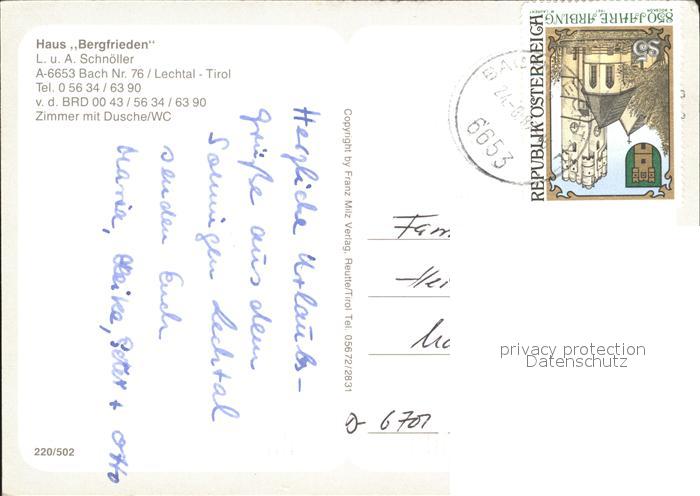 Haus „Bergfrieden"
L. u. A. Schnöller
A-6653 Bach Nr. 76 / Lechtal - Tirol
Tel. 0 56 34 / 63 90
v. d. BRD 00 43 / 56 34 / 63 90
Zimmer mit Dusche/WC
Herzliche Urlaubs-
grüße aus dem
Sonnigen Lechtal
senden Euch
Maria, Heike, Peter + Otto
220/502
Copyright by Franz Milz Verlag, Reutte/Tirol Tel. 05672/2831
REPUBLIK ÖSTERREICH
850 JAHRE ARBING
S5
6653
Fam
D- 6701
privacy protection
Datenschutz